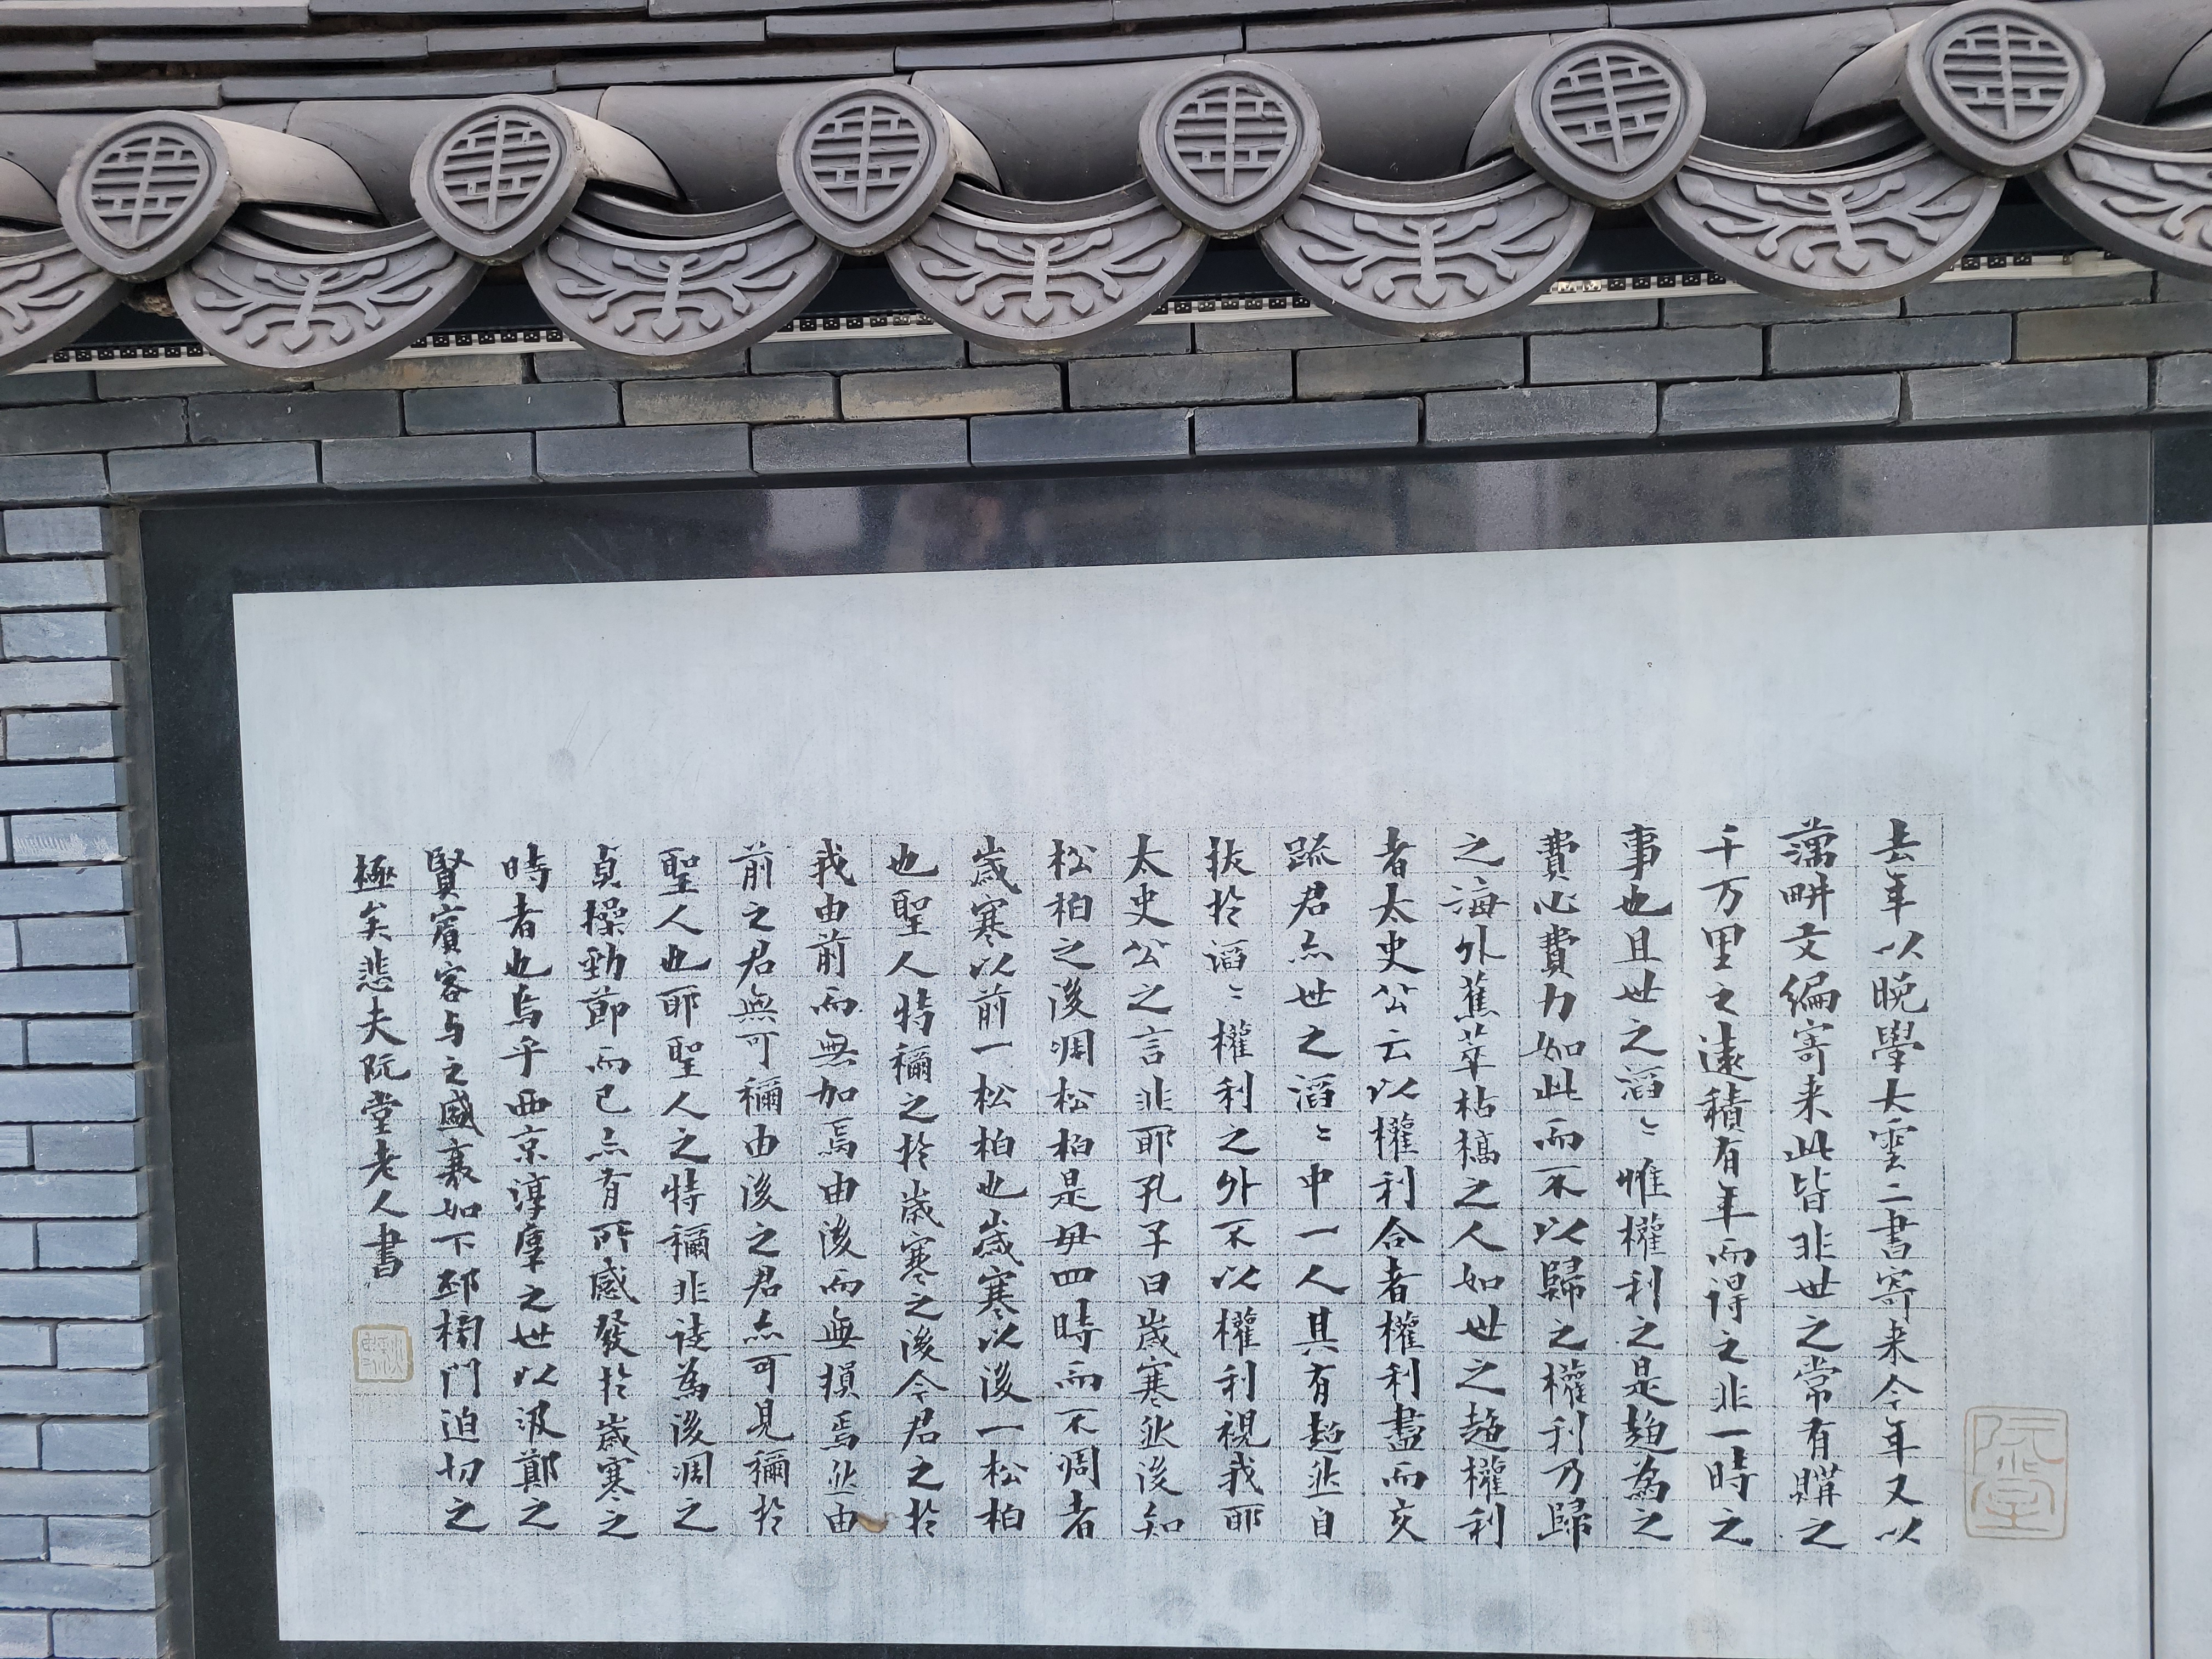 去年以晚學大雲二書寄来今年又以
藕畊文編寄来此皆非世之常有購之
千万里之遠積有年而得之非一時之
事也且世之滔〻惟權利之是趨為之
費心費力如此而不以歸之權利乃歸
之海外蕉萃枯槁之人如世之趨權利
者太史公云以權利合者權利盡而交
疏君亦世之滔〻中一人其有超然自
拔於滔〻權利之外不以權利視我耶
太史公之言非耶孔子曰歲寒然後知
松柏之後凋松柏是毋四時而不凋者
歲寒以前一松柏也歲寒以後一松柏
也聖人特稱之於歲寒之後今君之於
我由前而無加焉由後而無損焉然由
前之君無可稱由後之君亦可見稱於
聖人也耶聖人之特稱非徒為後凋之
貞操勁節而已亦有所感發於歲寒之
時者也烏乎西京淳厚之世以汲鄭之
賢賓客与之盛衰如下邳榜門迫切之
極矣悲夫阮堂老人書
阮堂